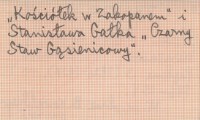 „Kościółek w Zakopanem" i
Stanisława Gałka „Czarny
Staw Gąsienicowy".